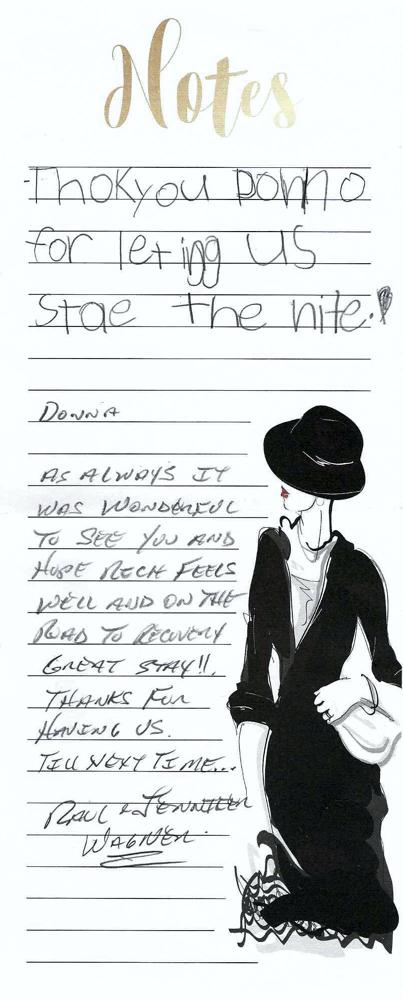 Notes
Thokyou Donno
for leting us
stae the nite.
Donna
AS ALWAYS IT
WAS WONDERFUL
TO SEE YOU AND
HOPE RICH FEELS
WELL AND ON THE
ROAD TO RECOVERY
GREAT STAY!!.
THANKS FOR
HAVING US.
TILL NEXT TIME...
PAUL & JENNIFER
WAGNER.